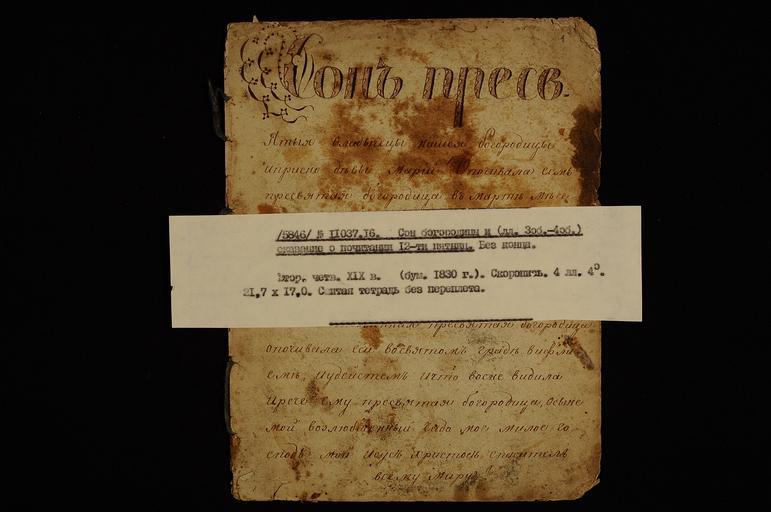 Сонъ пресв.
Ятыя владычицы нашея богородицы
иприсно девы Марии Опочивала семь
пресвятая богородица въ мартѣ мѣся
/5846/ № II037.I6. Сон богородицы и (лл. 3об.-4об.)
сказание о почитании 12-ти пятниц. Без конца.
Втор. четв. XIX в. (бум. 1830 г.). Скоропись. 4 лл. 4°.
21,7 х 17,0. Сшитая тетрадь без переплета.
пресвятая богородица
опочивала еси восвятомъ градѣ вифли
емѣ. иудейстемъ ичто воснѣ видила
Ирече ему пресвятая богородица, Осыне
мой возлюбленный чадо мое милое го
сподь мой Исусъ христосъ спаситель
всему миру